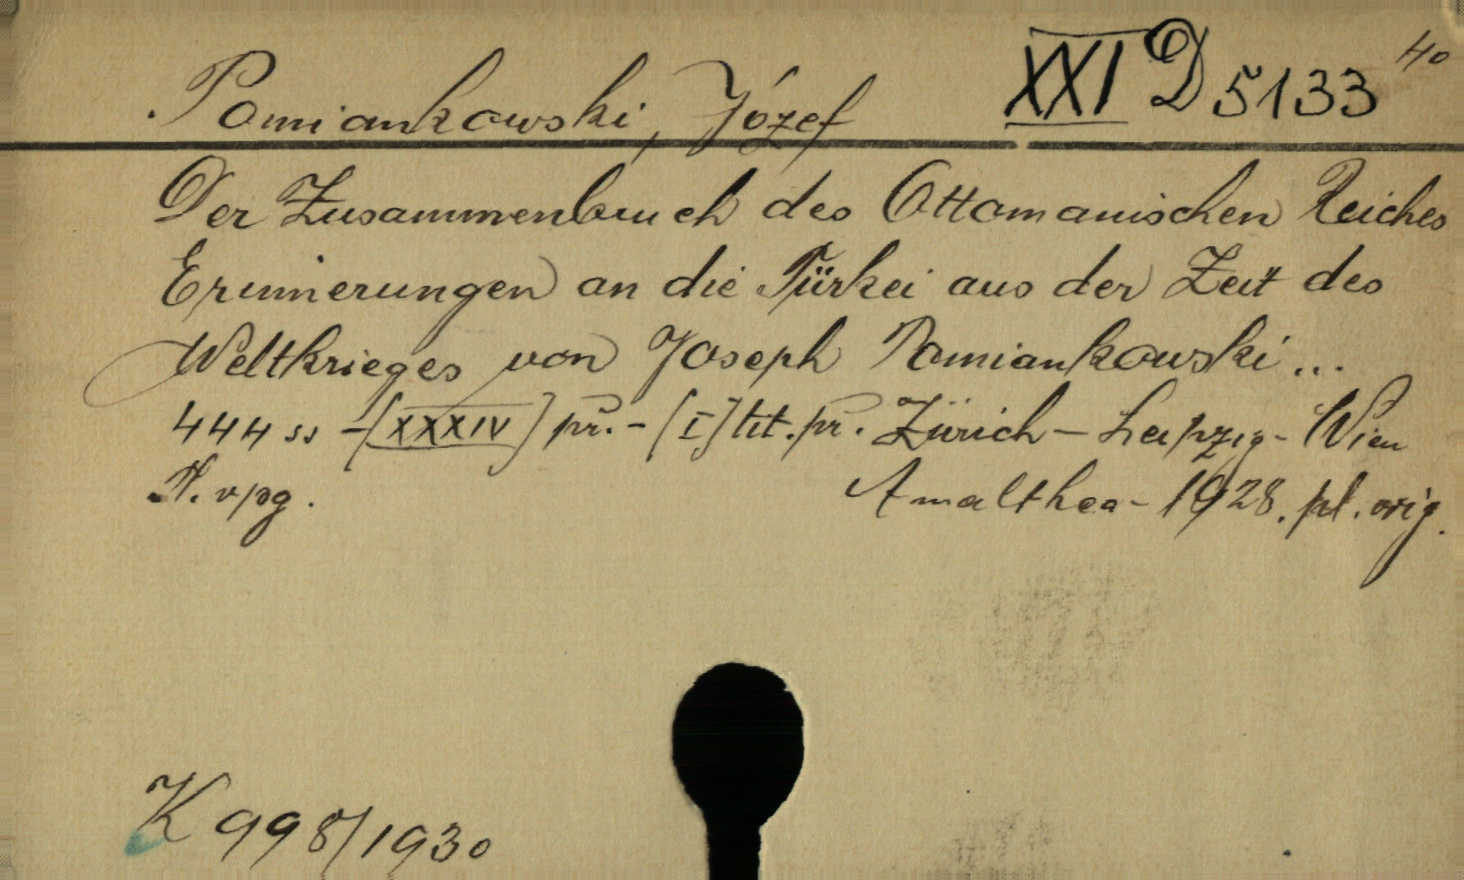 Pomiankowski, Józef XXI D 5133 40
Der Zusammenbruch des Ottomanischen Reiches
Erinnerungen an die Türkei aus der Zeit des
Weltkrieges von Joseph Pomiankowski...
444 ss - [XXXIV] pr. - [I] tit. pr. Zürich - Leipzig - Wien
Amalthea - 1928. pł. orig.
K 998/1930